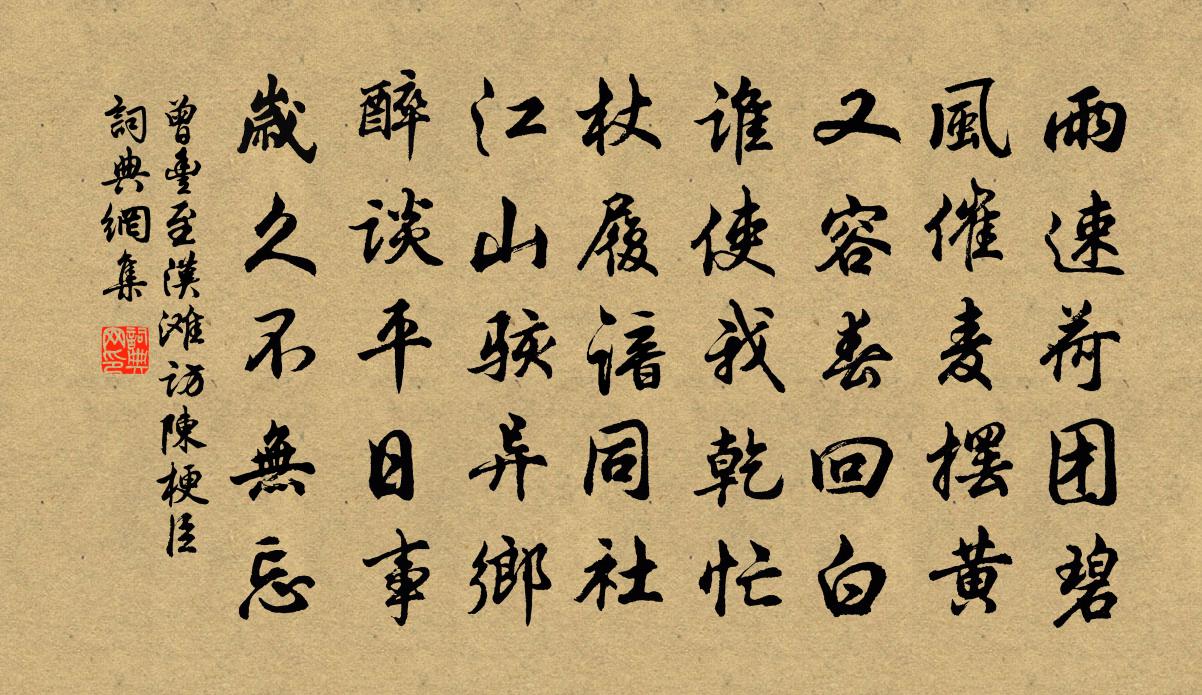 雨速荷团碧
風催麦摆黄
又容春回白
谁使我乾忙
杖履谙同社
江山骇异鄉
醉谈平日事
歲久不無忘
曾豐至漢滩访陳梗臣
詞典網集
詞典网印